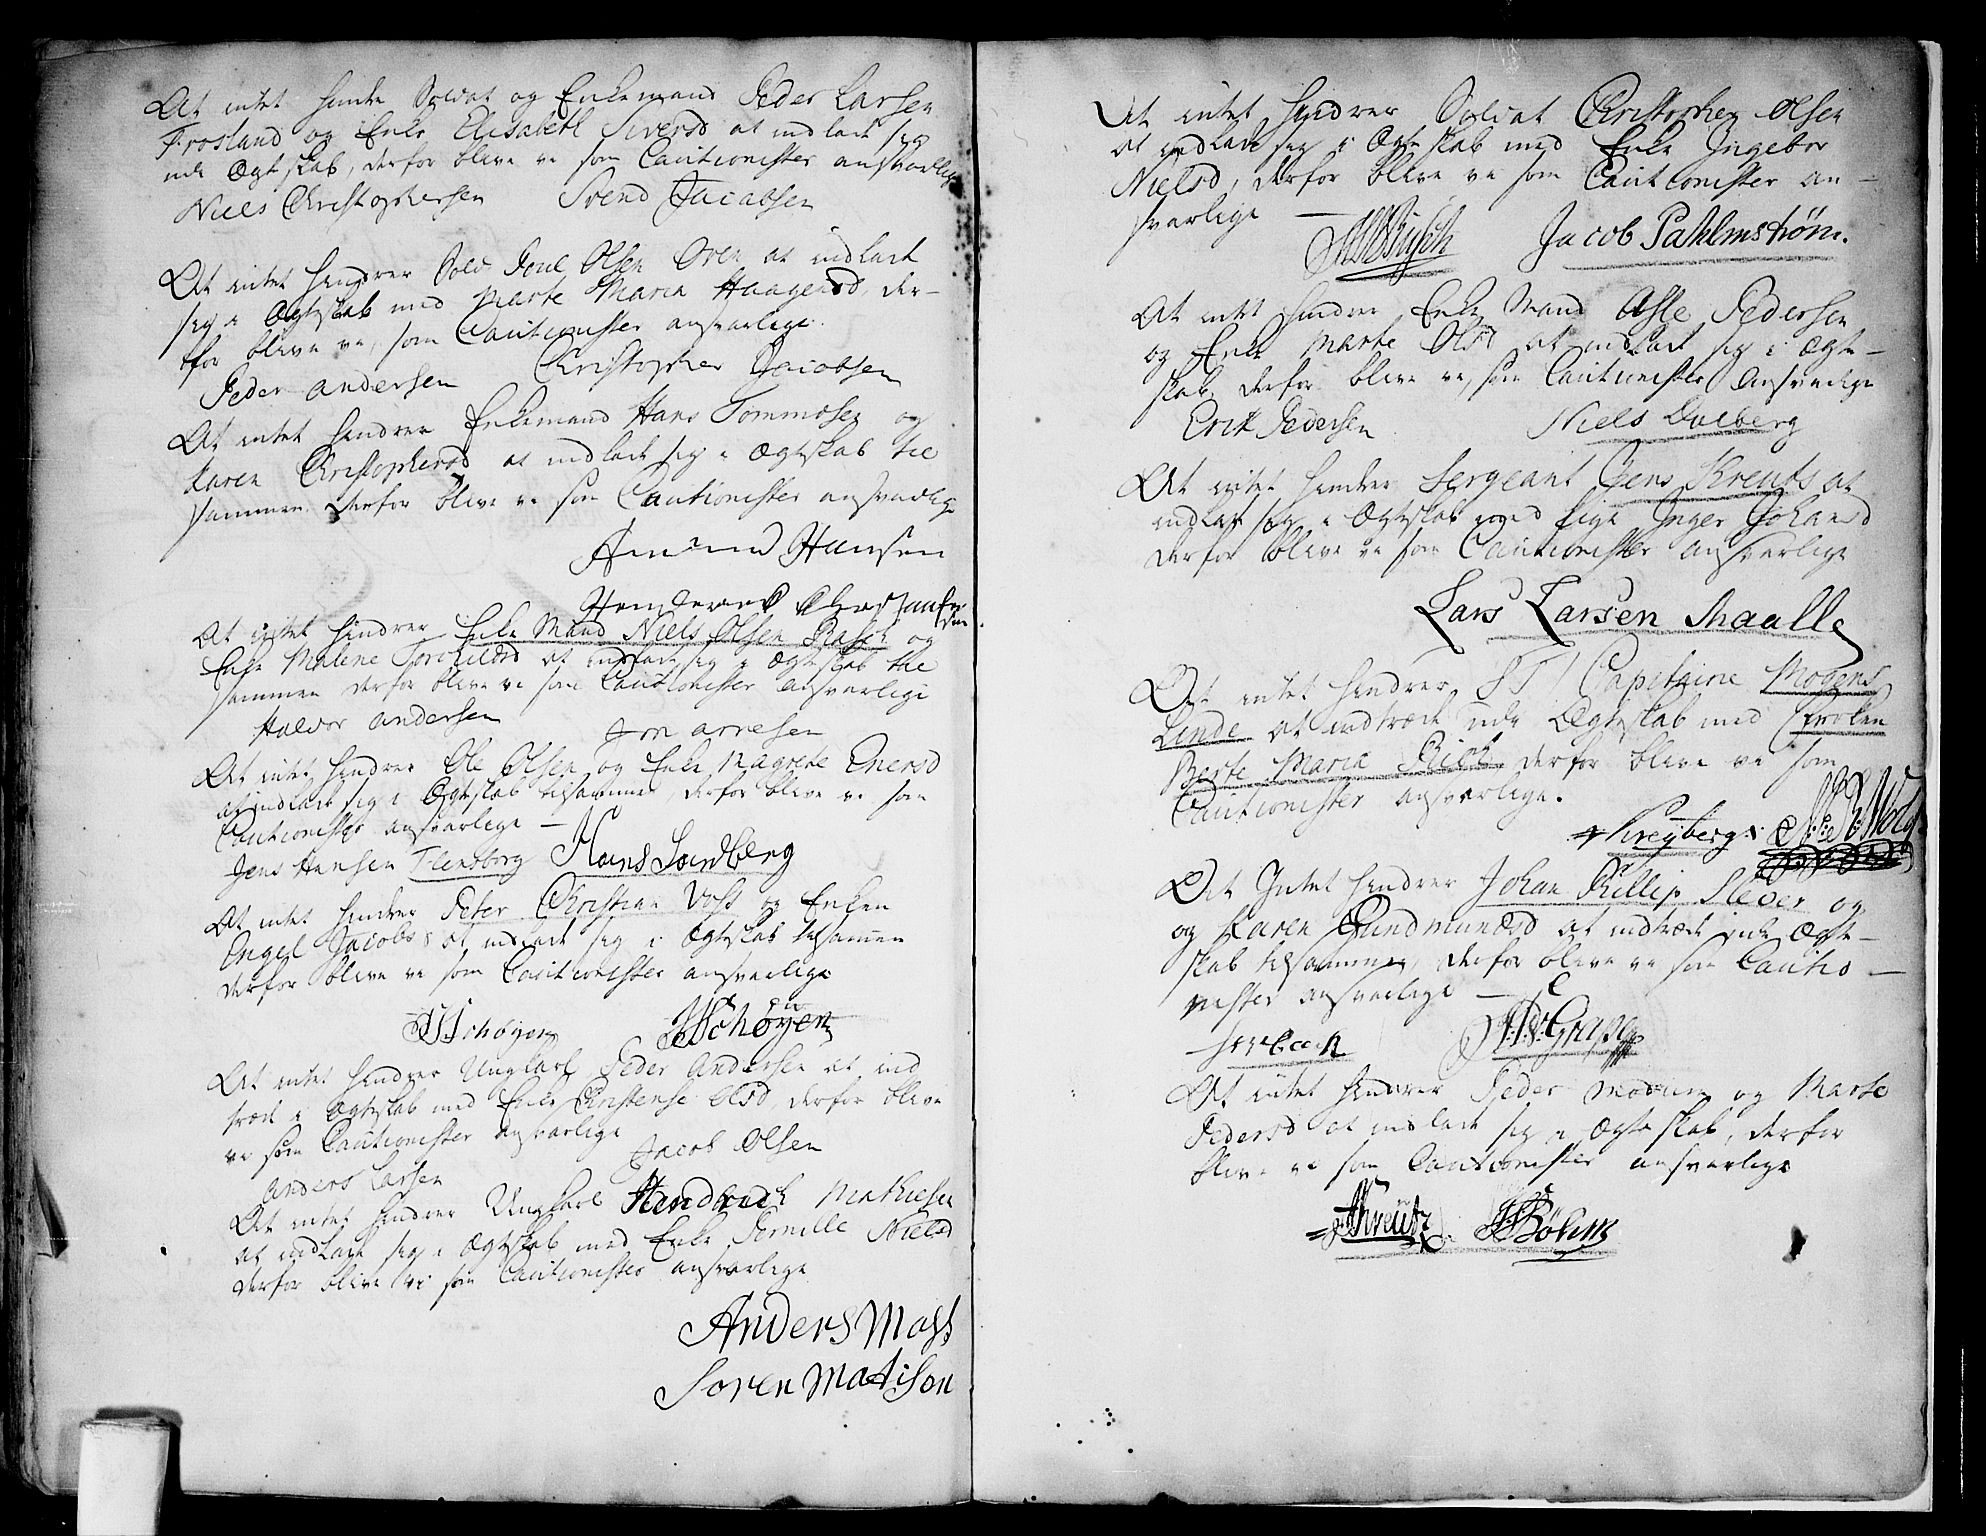 At intet hindre Soldat og Enkemand Peder Larsen
Frosland og Enke Elisabeth Siversd at indlade sig
udi Ægteskab, derfor blive vi som Cautionister ansvarlige
Niels Christophersen Svend Jacobsen
At intet hindrer Sold Poul Olsen Oren at indlade
sig i Ægteskab med Marte Maria Haagensd, der-
for blive vi, som Cautionister ansvarlige.
Peder andersen Christopher Jacobsen
At intet hindrer Enkemand Hans Tommosen og
Karen Christophersd at indlade sig i Ægteskab til
sammen. Derfor blive vi som Cautionister ansvarlige
Amund Hansen
At intet hindrer Enke Mand Niels Olsen Rasch og
Enke Malene Torchildsd at indlade sig i Ægteskab til
sammen derfor blive vi som Cautionister ansvarlige
Halvor andersen Jon arnesen
At intet hindrer Ole Olsen og Enke Magrete Enersd
at indlade sig i Ægteskab tilsammen derfor blive vi som
Cautionister ansvarlige —
Jens Hansen Flensborg Hans Sandberg
At intet hindrer Peter Christian Vost og Enken
Engel Jacobs at indlade sig i Ægteskab tilsammen
derfor blive vi som Cautionister ansvarlige
Schøyen Schøyen
At intet hindrer Ungkarl Peder Andersen at ind
træde i Ægteskab med Enke Christense Olsd, derfor blive
vi som Cautionister ansvarlige
Jacob Olsen
Anders Larsen
At intet hindrer Ungkarl Hendrich Mathiesen
at indlade sig i Ægteskab med Enke Pernille Nielsd
derfor blive vi som Cautionister ansvarlige
Anders Moss
Soren Matison
At intet hindrer Soldat Christopher Olsen
at indlade sig i Ægteskab med Enke Ingebor
Nielsd, derfor blive vi som Cautionister an-
svarlige —
Busch Jacob Pahlmstrøm.
At intet hindrer Enke Mand Asle Pedersen
og Enke Marte Olsd at indlade sig i Ægte-
skab, derfor blive vi, som Cautionister Ansvarlige
Erik Pedersen Niels Dalberg
At intet hindrer Sergeant Jens Kreuts at
indlade sig i Ægteskab med Pige Inger Johansd
derfor blive vi som Cautionister ansvarlige
Lars Larsen Shaalle
At intet hindrer S T/ Capitaine Mogens
Linde at indtræde udi Ægteskab med Frøken
Berte Maria Bieb, derfor blive vi som
Cautionister ansvarlige.
Kreyberg.
At Intet hindrer Johan Phillip Slever og
og Karen Gundmundsd at indtræde inde Ægte-
skab tilsammen, derfor blive vi som Cautio-
nister ansvarlige —
At intet hindrer Peder Modum og Marte
Pedersd at indlade sig i Ægteskab, derfor
blive vi som Cautionister ansvarlige
Kreutz Bøhm